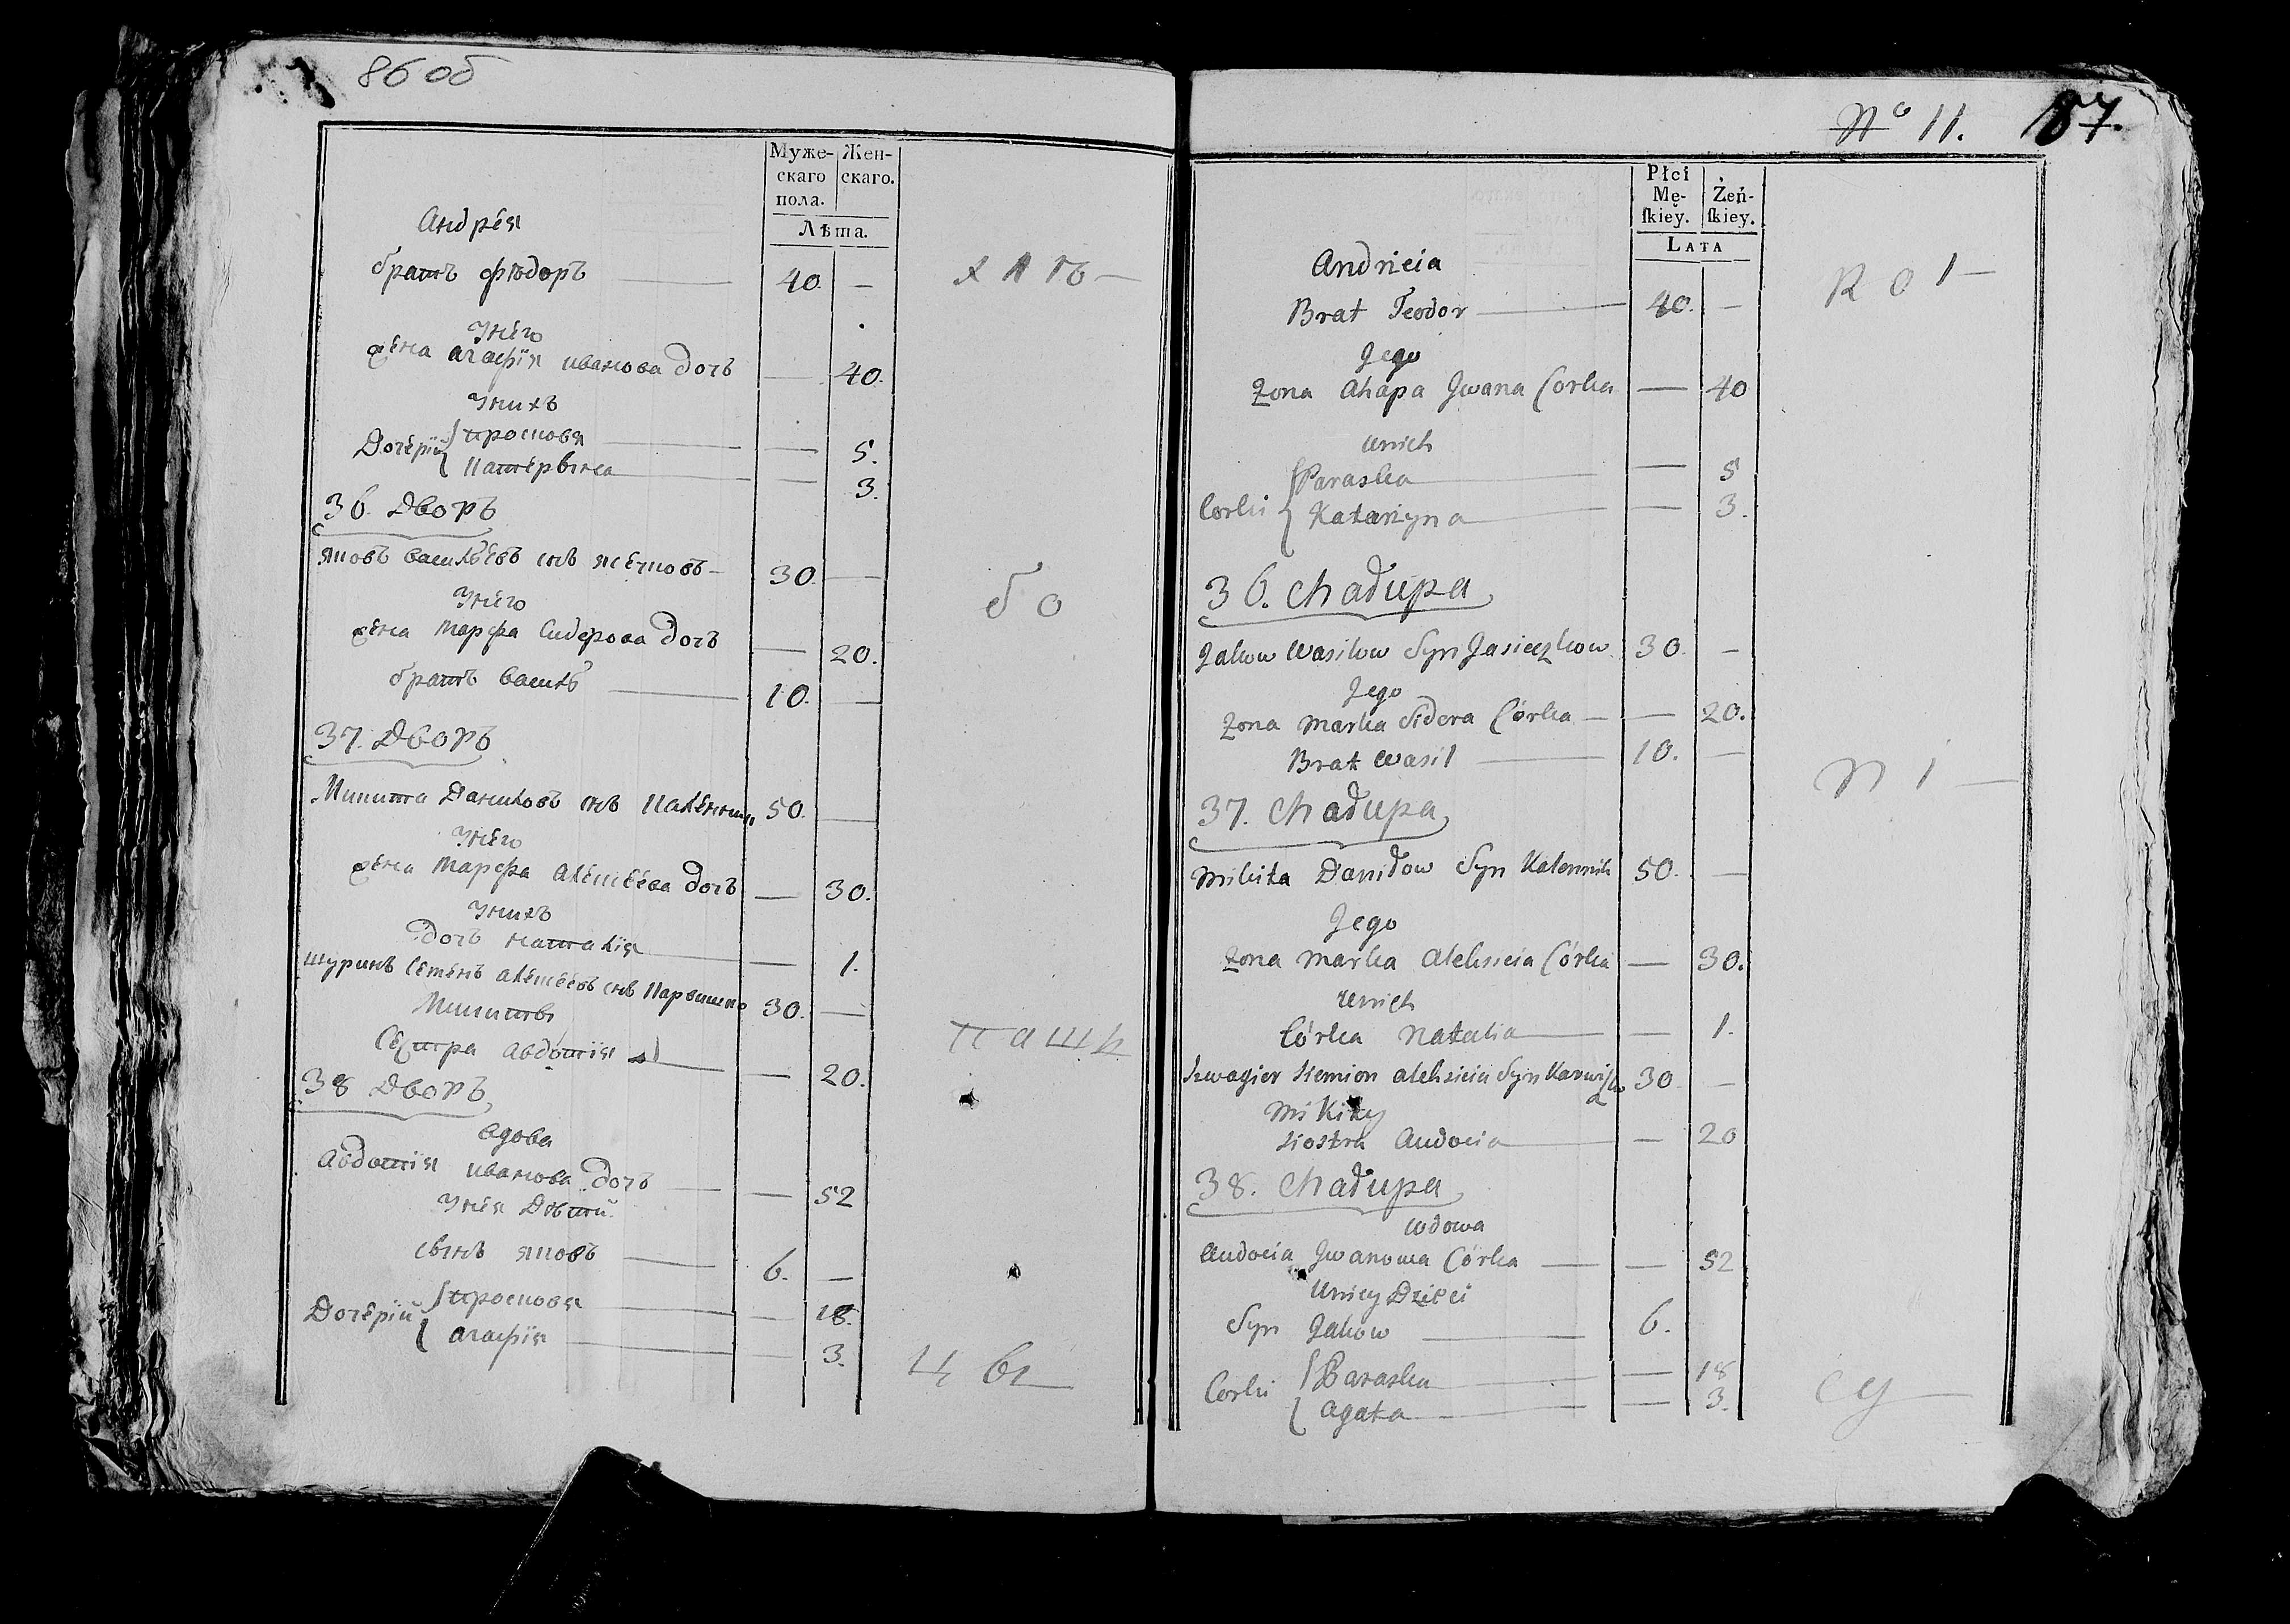 86 об
Муже-
скаго
пола.
Жен-
скаго.
Лѣта.
Андрея
братъ Фѣодоръ 40. —
Унего
жена Агафія иванова дочь — 40.
Унихъ
Дочерїи { Просковя — 5.
Катерына — 3.
36. Дворъ
Яковъ Василѣевъ снъ Ясечковъ 30. —
Унего
жена Марфа Сидерова дочь — 20.
братъ Василь 10. —
37. Дворъ
Микита Даниловъ снъ Каленникъ 50. —
Унего
жена Марфа Алексѣева дочь — 30.
Унихъ
дочь Наталїя — 1.
шуринъ Семенъ Алексѣевъ снъ Карвишко 30. —
Микиты
Сестра Авдотїя — 20.
38 Дворъ
вдова
Авдотїя иванова дочь — 52
Унея Дѣти
сынъ Яковъ 6. —
Дочерїи { Просковя — 18.
Агафія — 3.
№ 11. 87.
Płci
Mę-
ſkiey.
Żeń-
ſkiey.
LATA
Andrieia
Brat Teodor 40. —
Jego
Zona Ahapa Jwana Corka — 40
Unich
Corki { Paraska — 5
Katarzyna — 3.
36. Chałupa
Jakow Wasilow Syn Jasieczkow 30. —
Jego
Zona Marka Sidora Córka — 20.
Brat Wasil 10. —
37. Chałupa
Mikita Daniłow Syn Kalennik 50. —
Jego
Zona Marka Aleksieia Córka — 30.
Unich
Córka Natalia — 1.
Szwagier Siemion Aleksieia Syn Karwiszko 30 —
Mikity
Siostra Audocia — 20
38. Chałupa
wdowa
Audocia Jwanowa Córka — 52
Uniey Dzieci
Syn Jakow 6.
Corki { Paraska — 18
Agata — 3.